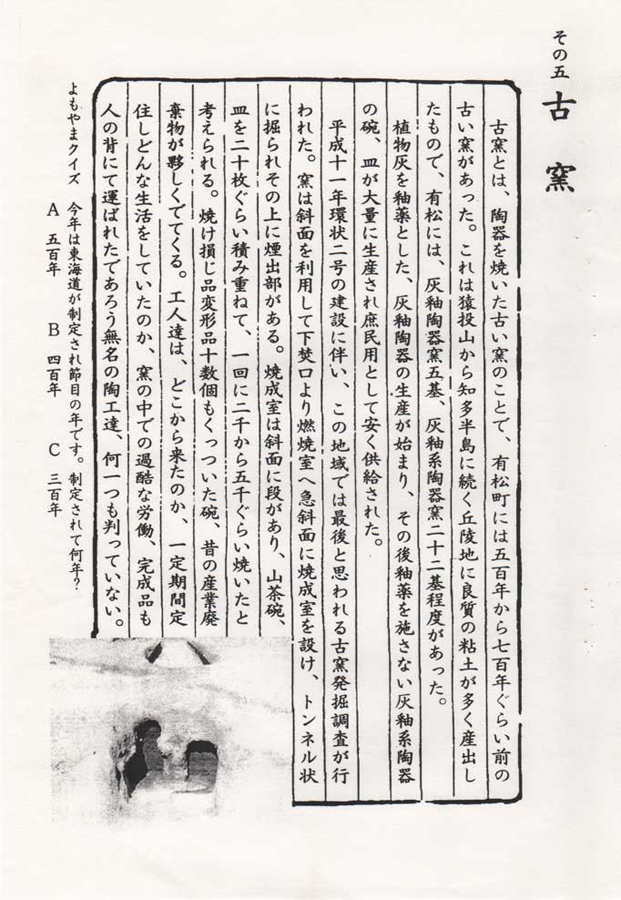 その五 古窯
古窯とは、陶器を焼いた古い窯のことで、有松町には五百年から七百年ぐらい前の
古い窯があった。これは猿投山から知多半島に続く丘陵地に良質の粘土が多く産出し
たもので、有松には、灰釉陶器窯五基、灰釉系陶器窯二十二基程度があった。
植物灰を釉薬とした、灰釉陶器の生産が始まり、その後釉薬を施さない灰釉系陶器
の碗、皿が大量に生産され庶民用として安く供給された。
平成十一年環状二号の建設に伴い、この地域では最後と思われる古窯発掘調査が行
われた。窯は斜面を利用して下焚口より燃焼室へ急斜面に焼成室を設け、トンネル状
に掘られその上に煙出部がある。焼成室は斜面に段があり、山茶碗、
皿を二十枚ぐらい積み重ねて、一回に二千から五千ぐらい焼いたと
考えられる。焼け損じ品変形品十数個もくっついた碗、昔の産業廃
棄物が夥しくでてくる。工人達は、どこから来たのか、一定期間定
住しどんな生活をしていたのか、窯の中での過酷な労働、完成品も
人の背にて運ばれたであろう無名の陶工達、何一つも判っていない。
よもやまクイズ 今年は東海道が制定され節目の年です。制定されて何年?
A 五百年 B 四百年 C 三百年